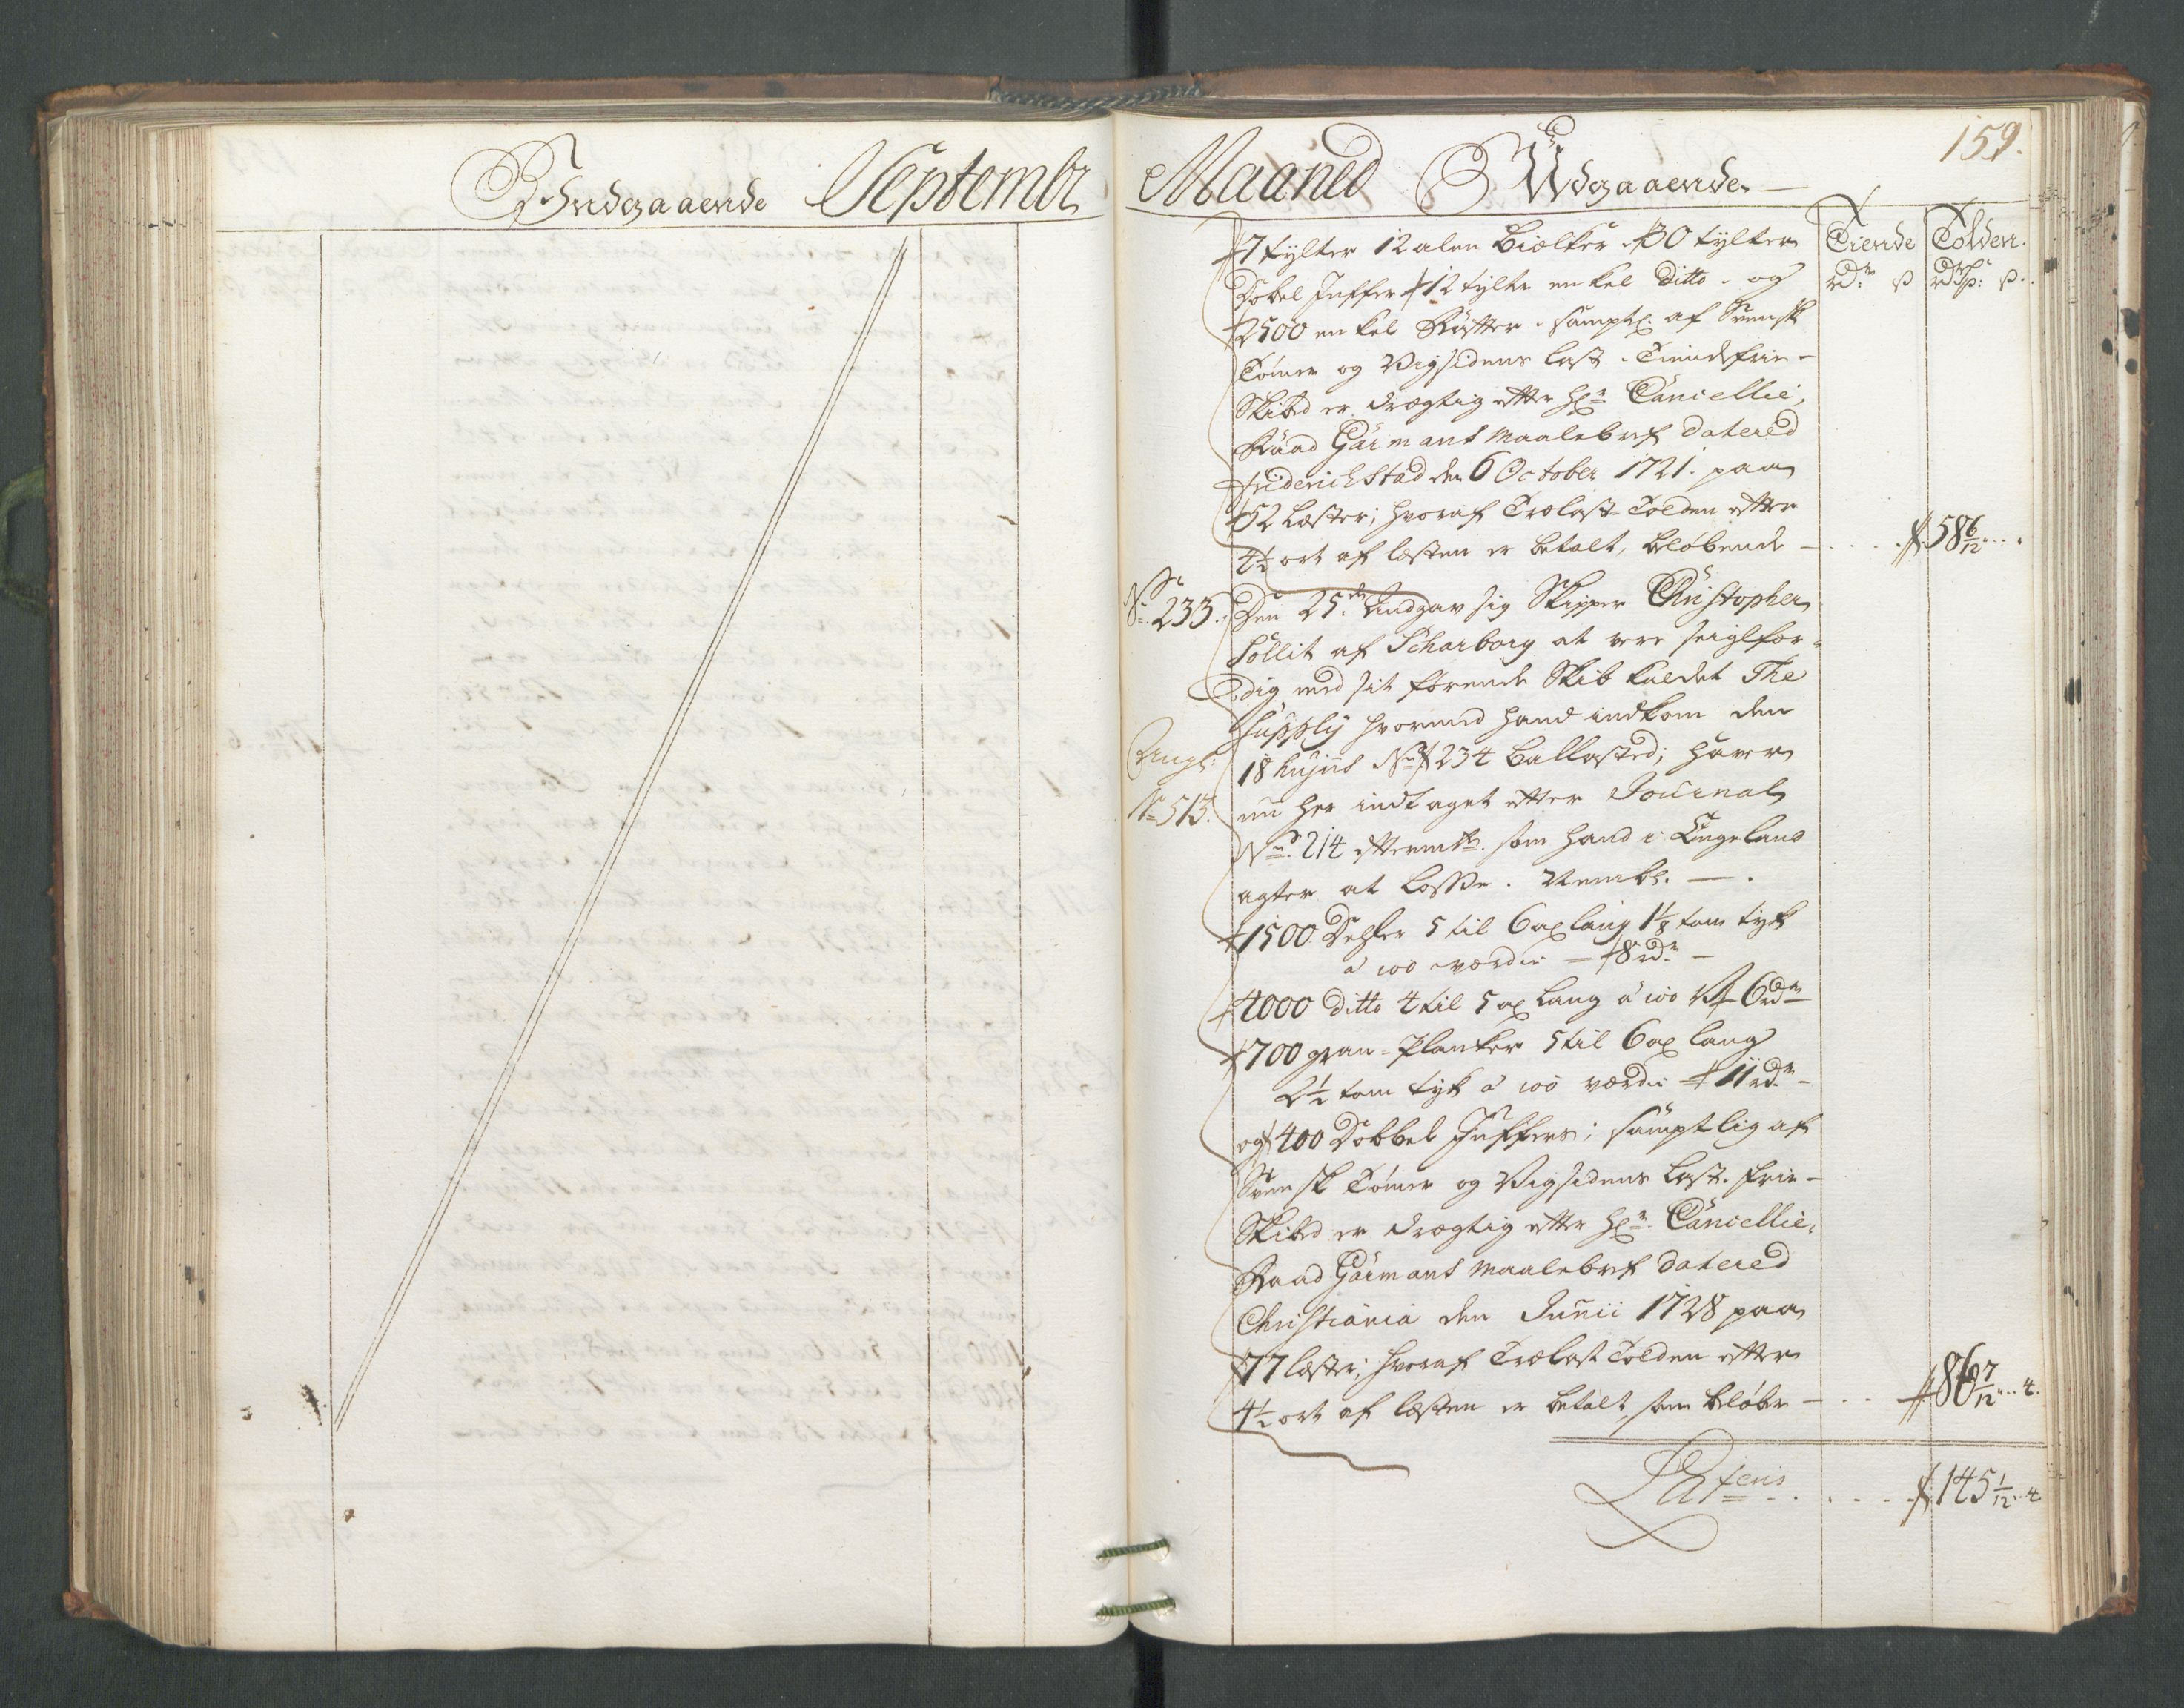 Indgaaende Septembr
Maaned Udgaaende
159.
Tiende Tolden.
rdr ß rdsp: ß.
7 tylter 12 alen Bielker 30 tylter
Dobel Juffer 12 tylte enkel ditto og
2500 enkel Røtter samptl: af Svensk
Tømer og Vigsidens last Tiendefrie
Skibed er drægtig efter Hr: Cancellie,
Raad Garmans maalebref datered
Friderichstad den 6 October 1721. paa
52 Læster; hvoraf Trælast-Tolden efter
4½ ort af læsten er betalt, beløbende 58 6/12
No 233. Den 25de Andgav sig Skipper Christopher
Sollit af Scharborg at vere seiglfær-
dig med sit førende Skib kaldet The
Supply hvormed hand indkom den
Engl: 18 hujus No 234 Ballasted; haver
No 513. nu her indtaget efter Journal
No 214 eftermte. som hand i Engeland
agter at losse. Nembl.
1500 Dehler 5 til 6 al lang 1⅛ tom tyk
a 100 værdie 8 rdr
4000 ditto 4 til 5 al lang a 100 6 rdr
700 gran-Planker 5 til 6 al lang
2½ tom tyk a 100 værdie 11 rdr
og 400 Dobbel Juffers; samptlig af
Svensk Tømer og Vigsidens Last. frie
Skibed er drægtig efter Hr. Cancellie,
Raad Garmans maalebref datered
Christiania den Junii 1728 paa
77 læster; hvoraf Trælast Tolden efter
4½ ort af læsten er betalt, som beløber 86 7/12 4.
Lateris 145 1/12 4